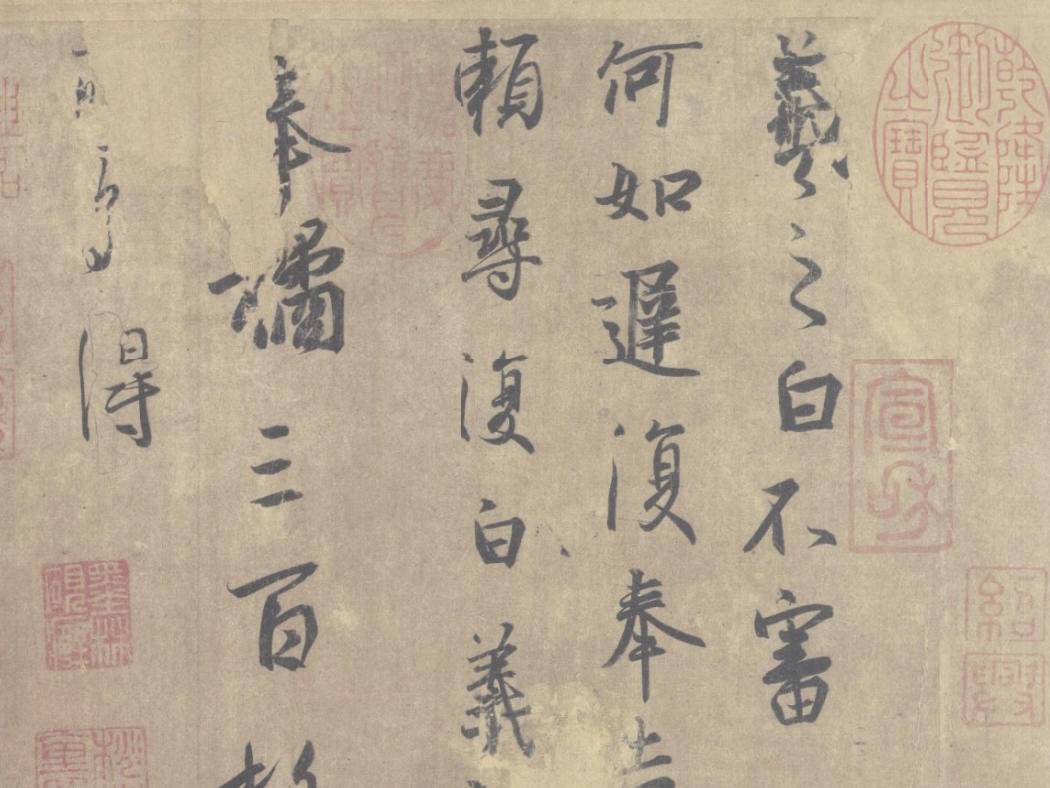 乾隆御覽之寶
宣和
紹興
羲之白不審
何如遲復奉告
賴尋復白羲
奉橘三百
可多得